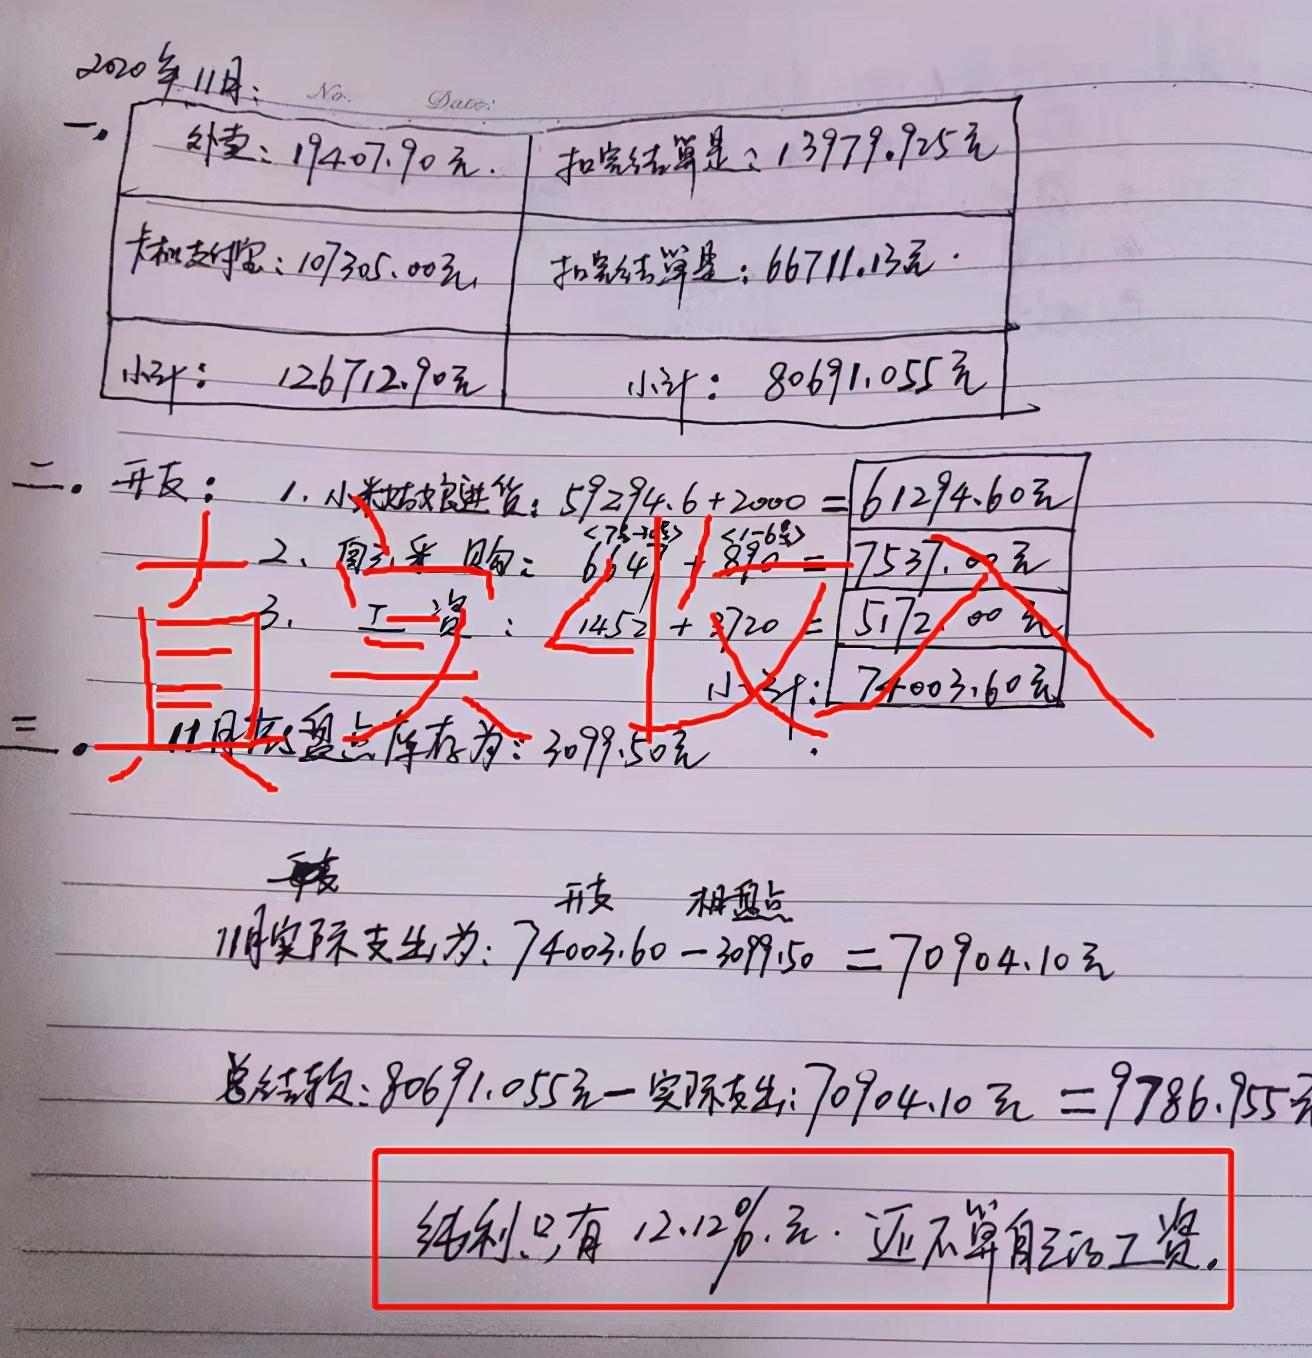 2020年11月:
No. Date:
一.
外卖: 19407.90元. 扣完结算是: 13979.925元
卡机支付宝: 107305.00元 扣完结算是: 66711.13元.
小计: 126712.90元 小计: 80691.055元
二. 开支: 1. 小米姑娘进货: 59294.6+2000=61294.60元
<7号-30号> <1-6号>
2. 自己采购: 6647+890=7537.00元
3. 工资: 1452+3720=5172.00元
小计: 74003.60元
真实收入
三. 11月底盘点库存为: 3099.50元
开支 相盘点
11月实际支出为: 74003.60-3099.50=70904.10元
总结款: 80691.055元-实际支出: 70904.10元=9786.955元
纯利只有12.12%.元. 还不算自己的工资.